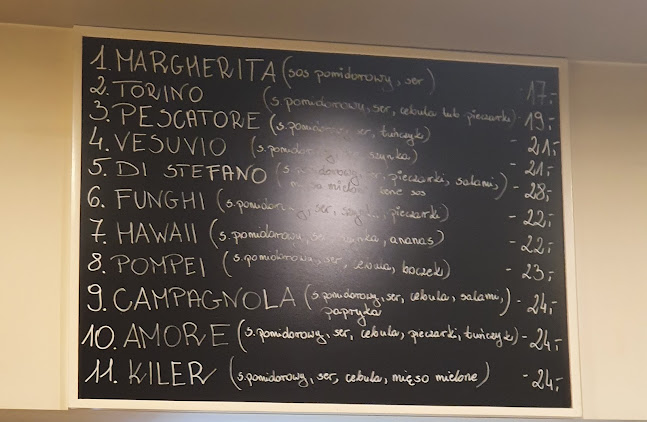 1. MARGHERITA (sos pomidorowy, ser) 17,-
2. TORINO (s. pomidorowy, ser, cebula lub pieczarki) - 19,-
3. PESCATORE (s. pomidorowy, ser, tuńczyk) - 21,-
4. VESUVIO (s. pomidorowy, szynka) - 21,-
5. DI STEFANO (s. pomidorowy, ser, pieczarki, salami, - 28,-
mięso mielone, sos)
6. FUNGHI (s. pomidorowy, ser, pieczarki) - 22,-
7. HAWAII (s. pomidorowy, ser, szynka, ananas) - 22,-
8. POMPEI (s. pomidorowy, ser, cebula, boczek) - 23,-
9. CAMPAGNOLA (s. pomidorowy, ser, cebula, salami, - 24,-
papryka)
10. AMORE (s. pomidorowy, ser, cebula, pieczarki, tuńczyk) - 24,-
11. KILER (s. pomidorowy, ser, cebula, mięso mielone) - 24,-